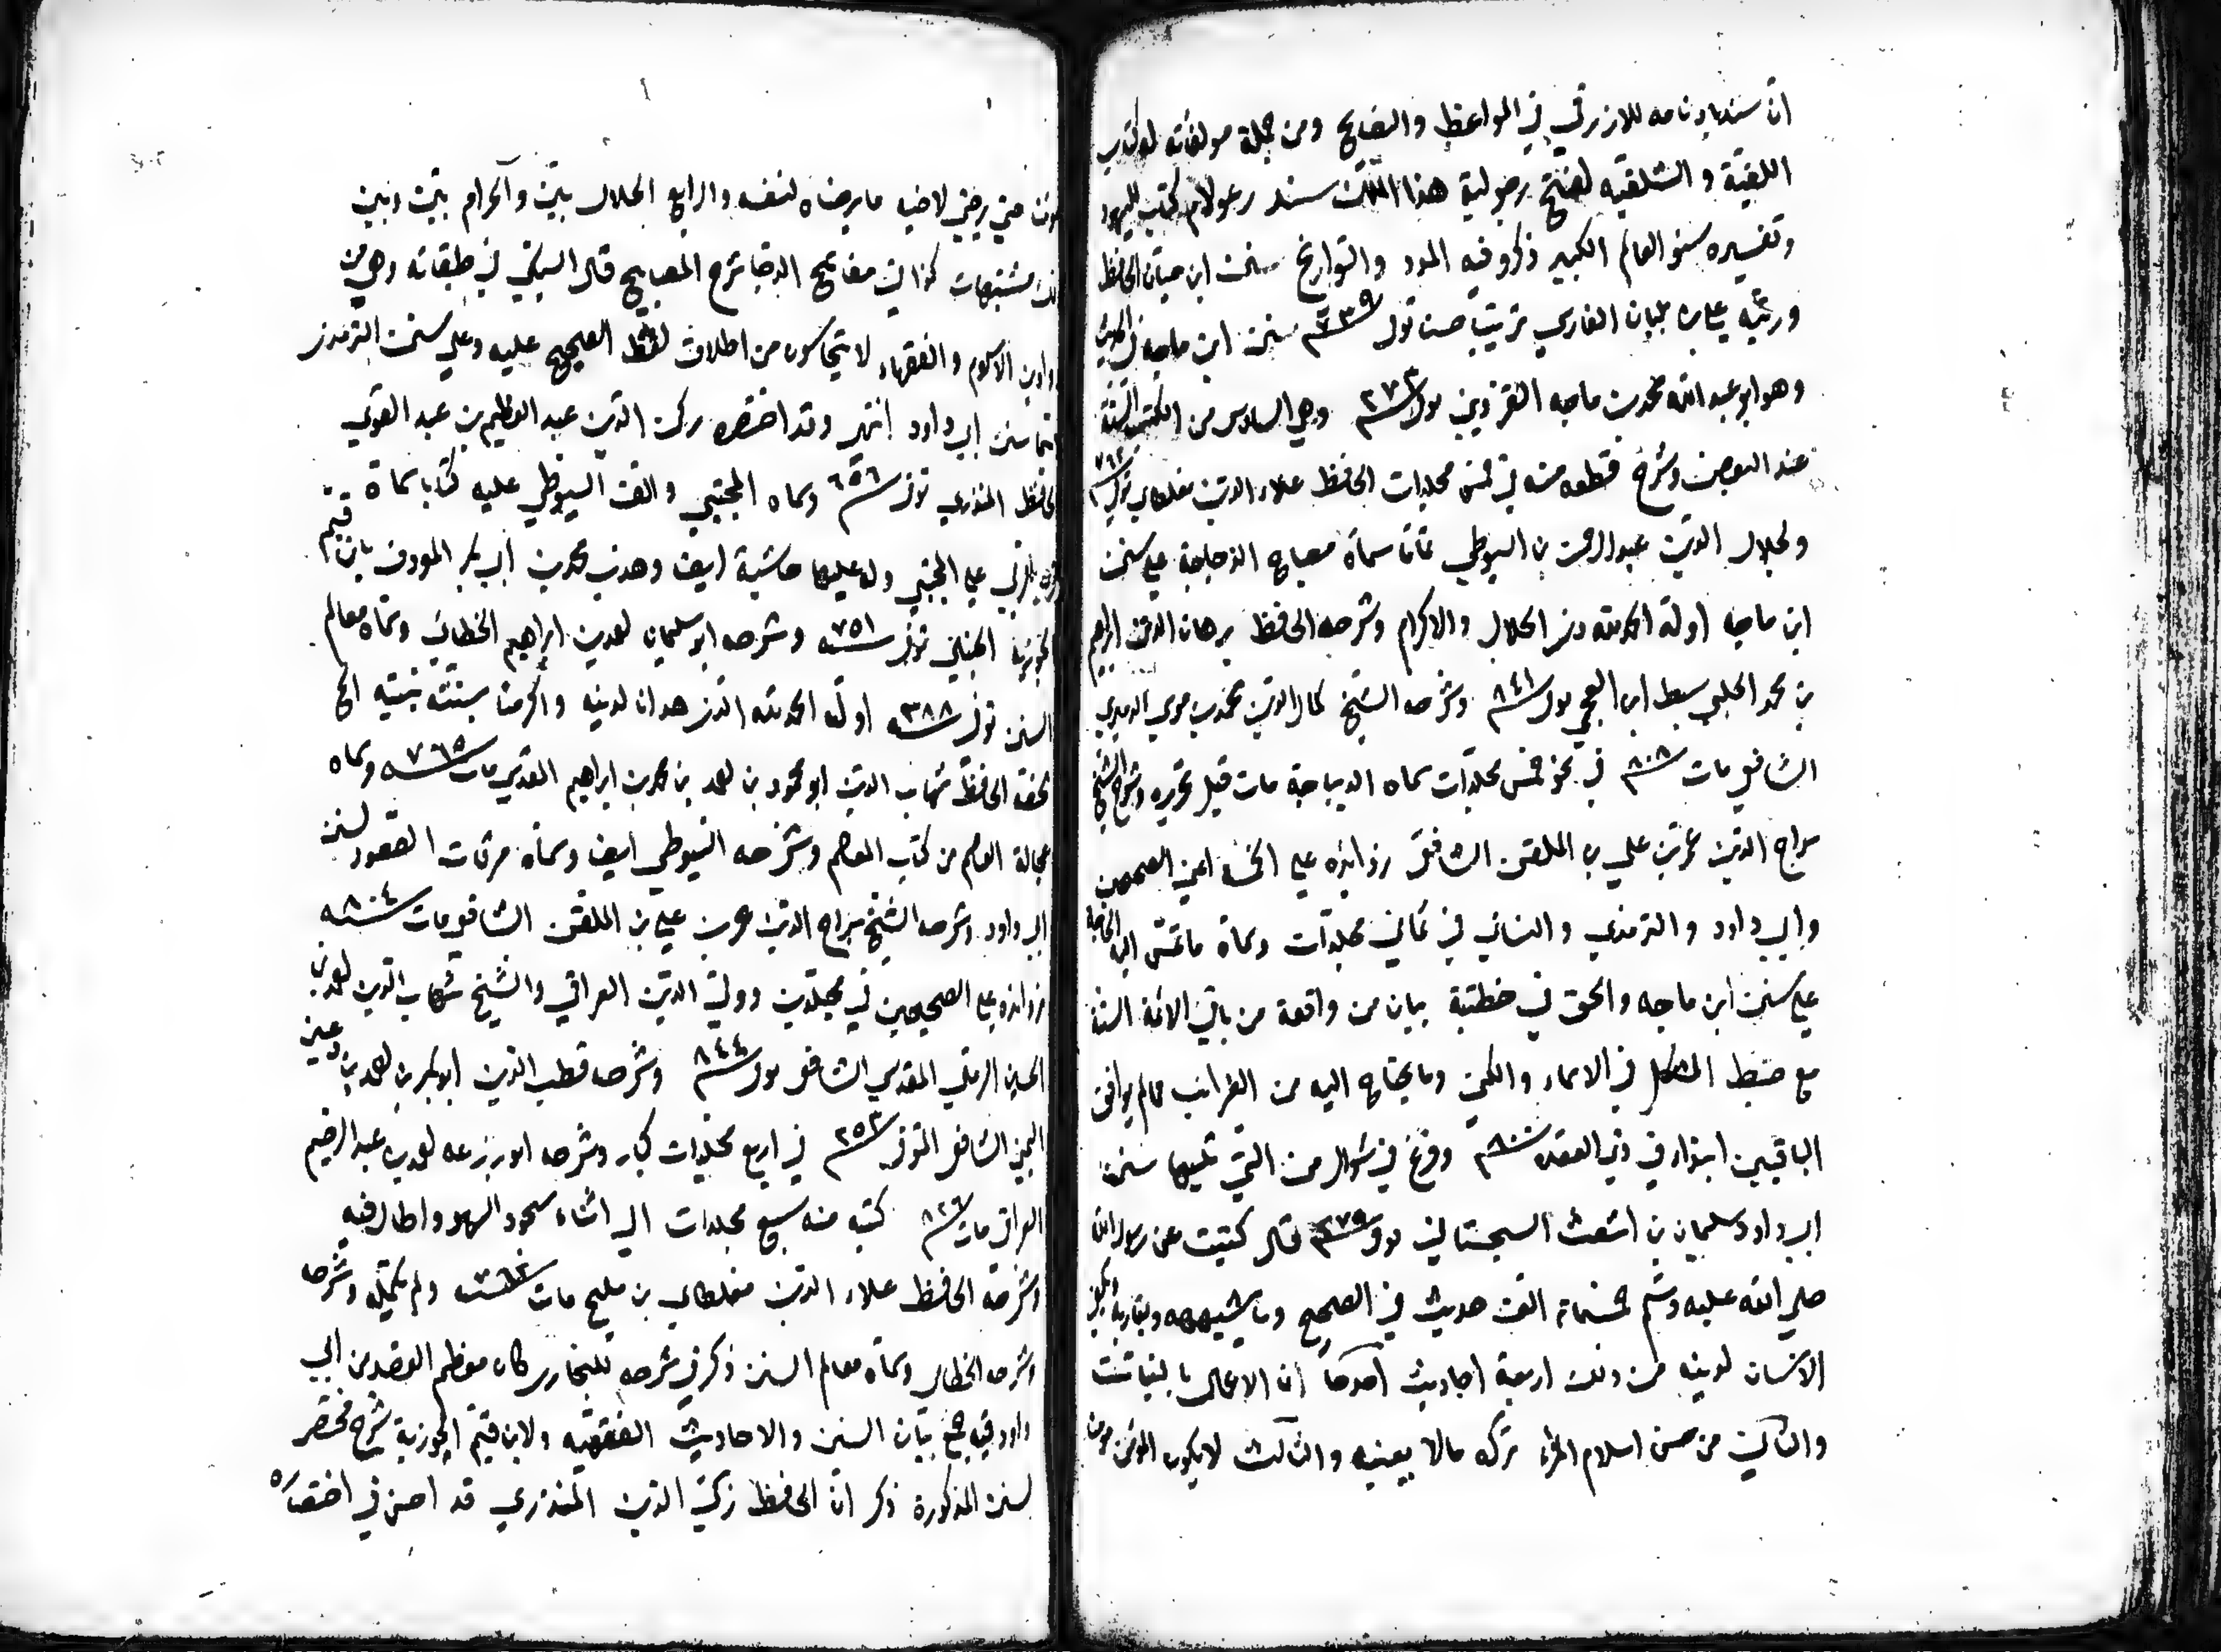 ان سندبادنامه للازرقي في المواعظ والنصايح ومن جملة مولفاته له كتاب
اللفية والشلفية هذا الملك سند كتب لليهود
وتفسيره سفر العالم الكبير ذكروفيه المدد والتواريخ سنن ابن حبان الحافظ
ورتبه علي بن بلبان الفارسي ترتيبا حسنا توفى ٧٣٩ سنن ابن ماجه في الحديث
وهو ابو عبد الله محمد بن ماجه القزويني توفى ٢٧٣ وهي السادس من الكتب الستة
عند البعض وشرح قطعه منه في خمس مجلدات الحافظ علاء الدين مغلطاي توفى ٧٦٢
ولجلال الدين عبد الرحمن بن السيوطي سماه مصباح الزجاجة على سنن
ابن ماجه اوله الحمد لله ذي الجلال والاكرام وشرحه الحافظ برهان الدين ابراهيم
بن محمد الحلبي سبط ابن العجمي توفى ٨٤١ وشرحه الشيخ كمال الدين محمد بن موسى الدميري
الشافعي مات ٨٠٨ في نحو خمس مجلدات سماه الديباجة مات قبل تحريره وشرح الشيخ
سراج الدين عمر بن علي بن الملقن الشافعي زوايده على الخمسة اعني الصحيحين
وابي داود والترمذي والنسائي في ثماني مجلدات وسماه ماتمس اليه الحاجة
على سنن ابن ماجه والحق في خطبة بيان من وافقه من باقي الائمة الستة
مع ضبط المشكل في الاسماء والكنى وما يحتاج اليه من الغرائب مما لم يوافق
الباقين ابتداء في ذي القعده ٨٠٠ وفرغ في شوال من التي تليها سنن
ابي داود سليمان بن اشعث السجستاني توفى ٢٧٥ قال كتبت عن رسول الله
صلى الله عليه وسلم خمسمائة الف حديث في الصحيح وما يشبهه ويقاربه ويكفي
الانسان لدينه من ذلك اربعة احاديث احدها ان الاعمال بالنيات
والثاني من حسن اسلام المرء تركه مالا يعنيه والثالث لا يكون المؤمن مؤمنا
حتى يرضى لاخيه ما يرضاه لنفسه والرابع الحلال بين والحرام بين وبين
ذلك مشتبهات كذا في مفاتيح الدجا شرح المصابيح قال السبكي في طبقاته وهي من
دواوين الاسلام والفقهاء لا يتحاشون من اطلاق لفظ الصحيح عليه وعلى سنن الترمذي
سنن ابي داود انتهى وقد اختصره زكي الدين عبد العظيم بن عبد القوي
الحافظ المنذري توفى ٦٥٦ وسماه المجتبى والف السيوطي عليه كتابا سماه
على المجتبى وله عليها حاشية ايضا وهذبه محمد بن ابي بكر المعروف بابن قيم
الجوزية الحنبلي توفى ٧٥١ وشرحه ابو سليمان احمد بن ابراهيم الخطابي وسماه معالم
السنن توفى ٣٨٨ اوله الحمد لله الذي هدانا لدينه واكرمنا بسنة نبيه الخ
لخصه الحافظ شهاب الدين ابو محمود بن احمد بن محمد بن ابراهيم المقدسي مات ٧٦٥ وسماه
عجالة العالم من كتاب المعالم وشرحه السيوطي ايضا وسماه مرقات الصعود لسنن
ابي داود وشرحه الشيخ سراج الدين عمر بن علي بن الملقن الشافعي مات ٨٠٤
زوائده على الصحيحين في مجلدين وولي الدين العراقي والشيخ شهاب الدين احمد بن
الحسين الرملي المقدسي الشافعي توفى ٨٤٤ وشرحه قطب الدين ابو بكر بن احمد بن دعين
اليمني الشافعي المتوفى ٢٥٢ في اربع مجلدات كبار وشرحه ابو زرعه احمد بن عبد الرحيم
العراقي مات ٨٢٦ كتبه منه سبع مجلدات الى اثناء سجود السهو واطال فيه
وشرحه الحافظ علاء الدين مغلطاي بن مليح مات ٧٦٢ ولم يكمله وشرحها
وشرحه الخطابي وسماه معالم السنن ذكر في شرحه للبخاري كان معظم القصد من ابي
داود في جمع بيان السنن والاحاديث الفقهيه ولابن قيم الجوزية شرح مختصر
لسنن المذكورة ذكر ان الحافظ زكي الدين المنذري قد احسن في اختصاره